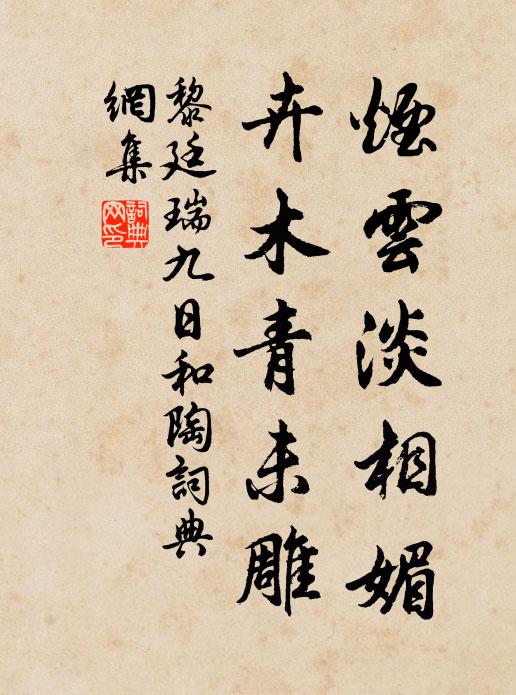 煙雲淡相媚
卉木青未雕
黎廷瑞九日和陶詞典
網集
詞典
网印